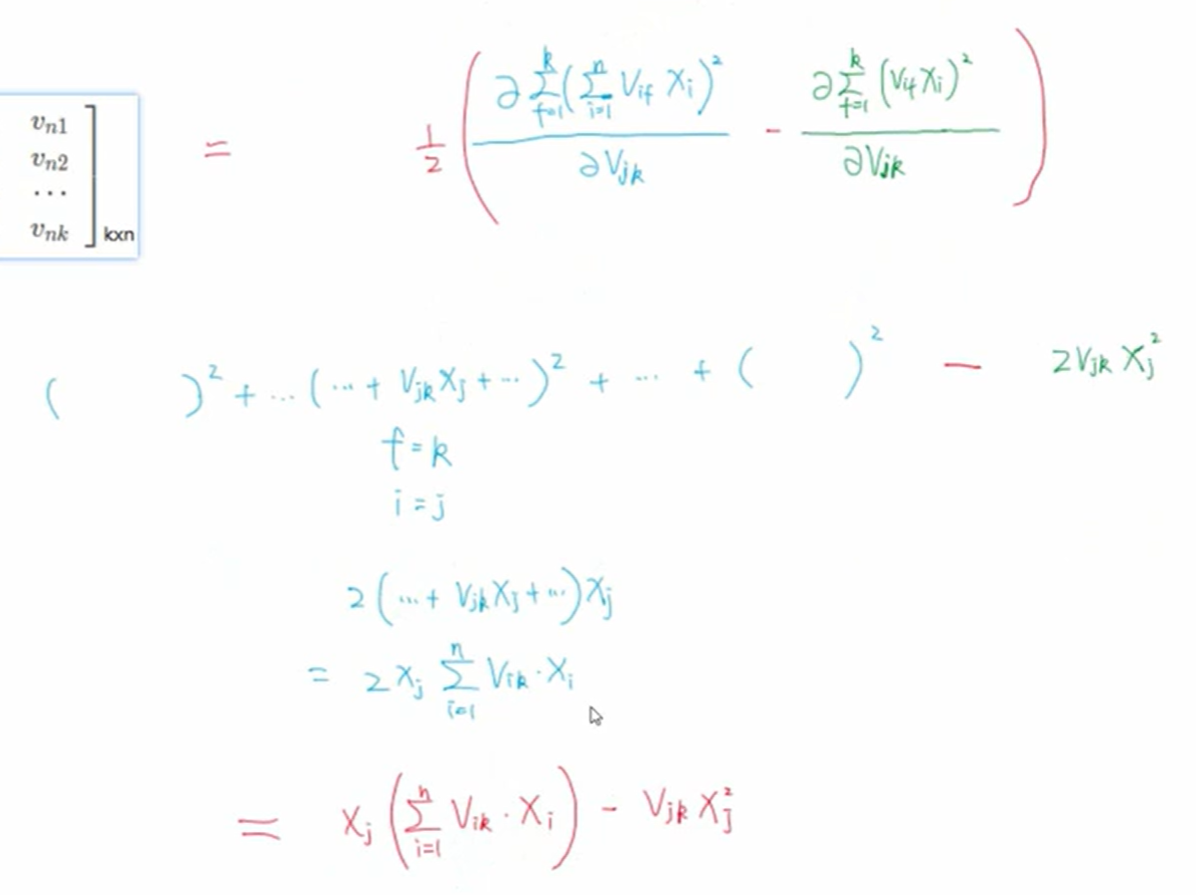 v_{n1}
v_{n2}
...
v_{nk}
kxn
= \frac{1}{2} ( \frac{∂ \sum_{f=1}^{k} ( \sum_{i=1}^{n} V_{if} X_i )^2}{∂V_{jk}} - \frac{∂ \sum_{f=1}^{k} (V_{if} X_i)^2}{∂V_{jk}} )
( )^2 + ... ( ... + V_{jk} X_j + ... )^2 + ... + ( )^2 - 2V_{jk} X_j^2
f = k
i = j
2 ( ... + V_{jk} X_j + ... ) X_j
= 2 X_j \sum_{i=1}^{n} V_{ik} · X_i
= X_j ( \sum_{i=1}^{n} V_{ik} · X_i ) - V_{jk} X_j^2